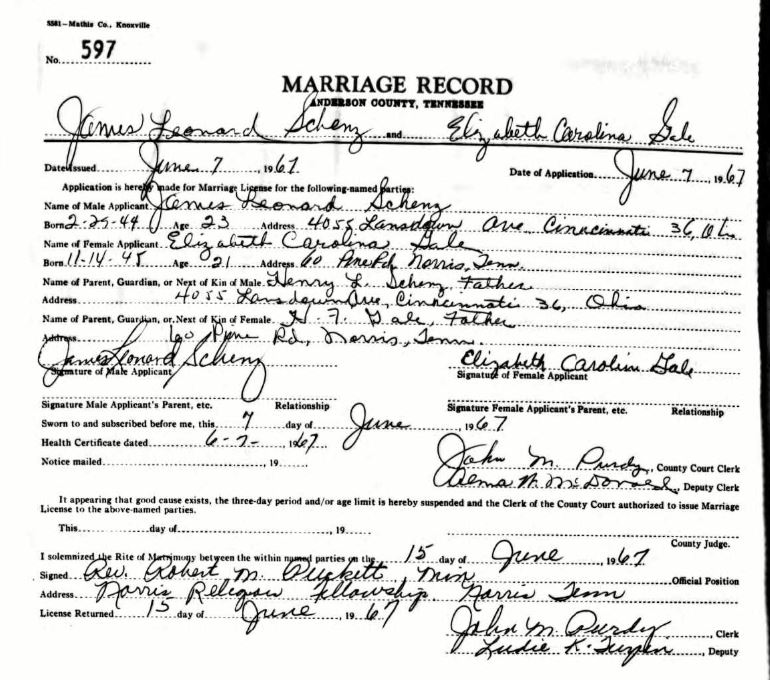 5581-Mathis Co., Knoxville
No. 597
MARRIAGE RECORD
ANDERSON COUNTY, TENNESSEE
James Leonard Schenz and Elizabeth Carolina Gale
Date Issued June 7, 1967 Date of Application June 7, 1967
Application is hereby made for Marriage License for the following-named parties:
Name of Male Applicant James Leonard Schenz
Born 2-29-44 Age 23 Address 4055 Lansdown Ave Cincinnati 36, Ohio
Name of Female Applicant Elizabeth Carolina Gale
Born 11-14-45 Age 21 Address 60 Pine Rd, Norris, Tenn.
Name of Parent, Guardian, or Next of Kin of Male Henry L. Schenz, Father
Address 4055 Lansdown Ave, Cincinnati 36, Ohio
Name of Parent, Guardian, or Next of Kin of Female H. F. Gale, Father
Address 60 Pine Rd, Norris, Tenn.
James Leonard Schenz Elizabeth Carolin Gale
Signature of Male Applicant Signature of Female Applicant
Signature Male Applicant's Parent, etc. Relationship Signature Female Applicant's Parent, etc. Relationship
Sworn to and subscribed before me, this 7 day of June, 1967
Health Certificate dated 6-7-, 1967
John M. Purdy, County Court Clerk
Notice mailed, 19
McDonald, Deputy Clerk
It appearing that good cause exists, the three-day period and/or age limit is hereby suspended and the Clerk of the County Court authorized to issue Marriage
License to the above-named parties.
This day of, 19
County Judge.
I solemnized the Rite of Matrimony between the within named parties on the 15 day of June, 1967
Signed Rev. Robert M. Puckett, Min Official Position
Address Norris Religious Fellowship, Norris Tenn
License Returned 15 day of June, 1967
John M Purdy, Clerk
Ludie K. Turpin, Deputy